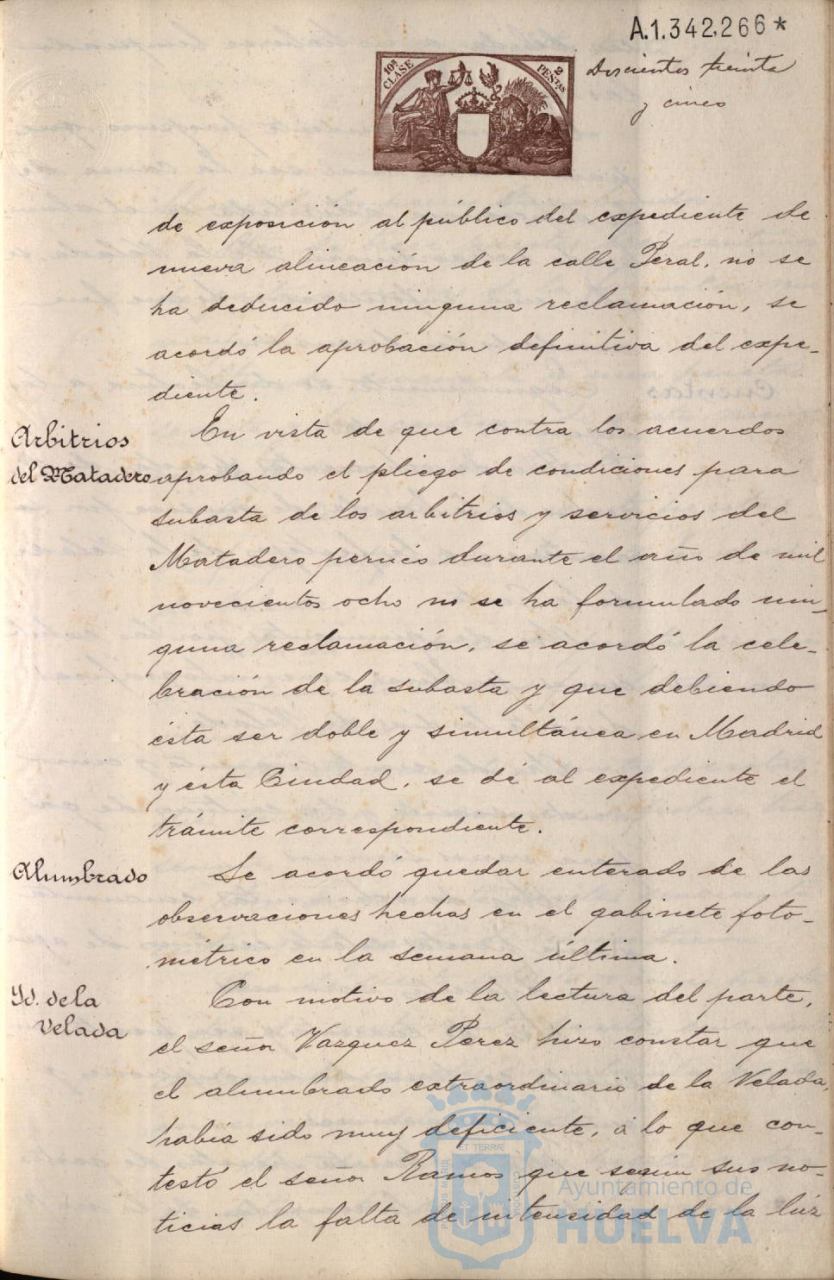 A.1.342,266*
10ª CLASE
2 PESETAS
Doscientos treinta
y cinco
de exposición al público del expediente de
nueva alineación de la calle Peral, no se
ha deducido ninguna reclamación, se
acordó la aprobación definitiva del expe-
diente.
Arbitrios
del Matadero
En vista de que contra los acuerdos
aprobando el pliego de condiciones para
subasta de los arbitrios y servicios del
Matadero pernes durante el año de mil
novecientos ocho no se ha formulado nin-
guna reclamación, se acordó la cele-
bración de la subasta y que debiendo
ésta ser doble y simultánea en Madrid
y ésta Ciudad, se dé al expediente el
trámite correspondiente.
Alumbrado
Se acordó quedar enterado de las
observaciones hechas en el gabinete foto-
métrico en la semana última.
Yd. de la
Velada
Con motivo de la lectura del parte,
el señor Vazquez Perez hizo constar que
el alumbrado extraordinario de la Velada,
había sido muy deficiente, á lo que con-
testó el señor Ramos que según sus no-
ticias la falta de intensidad de la lúz
Ayuntamiento de
HUELVA